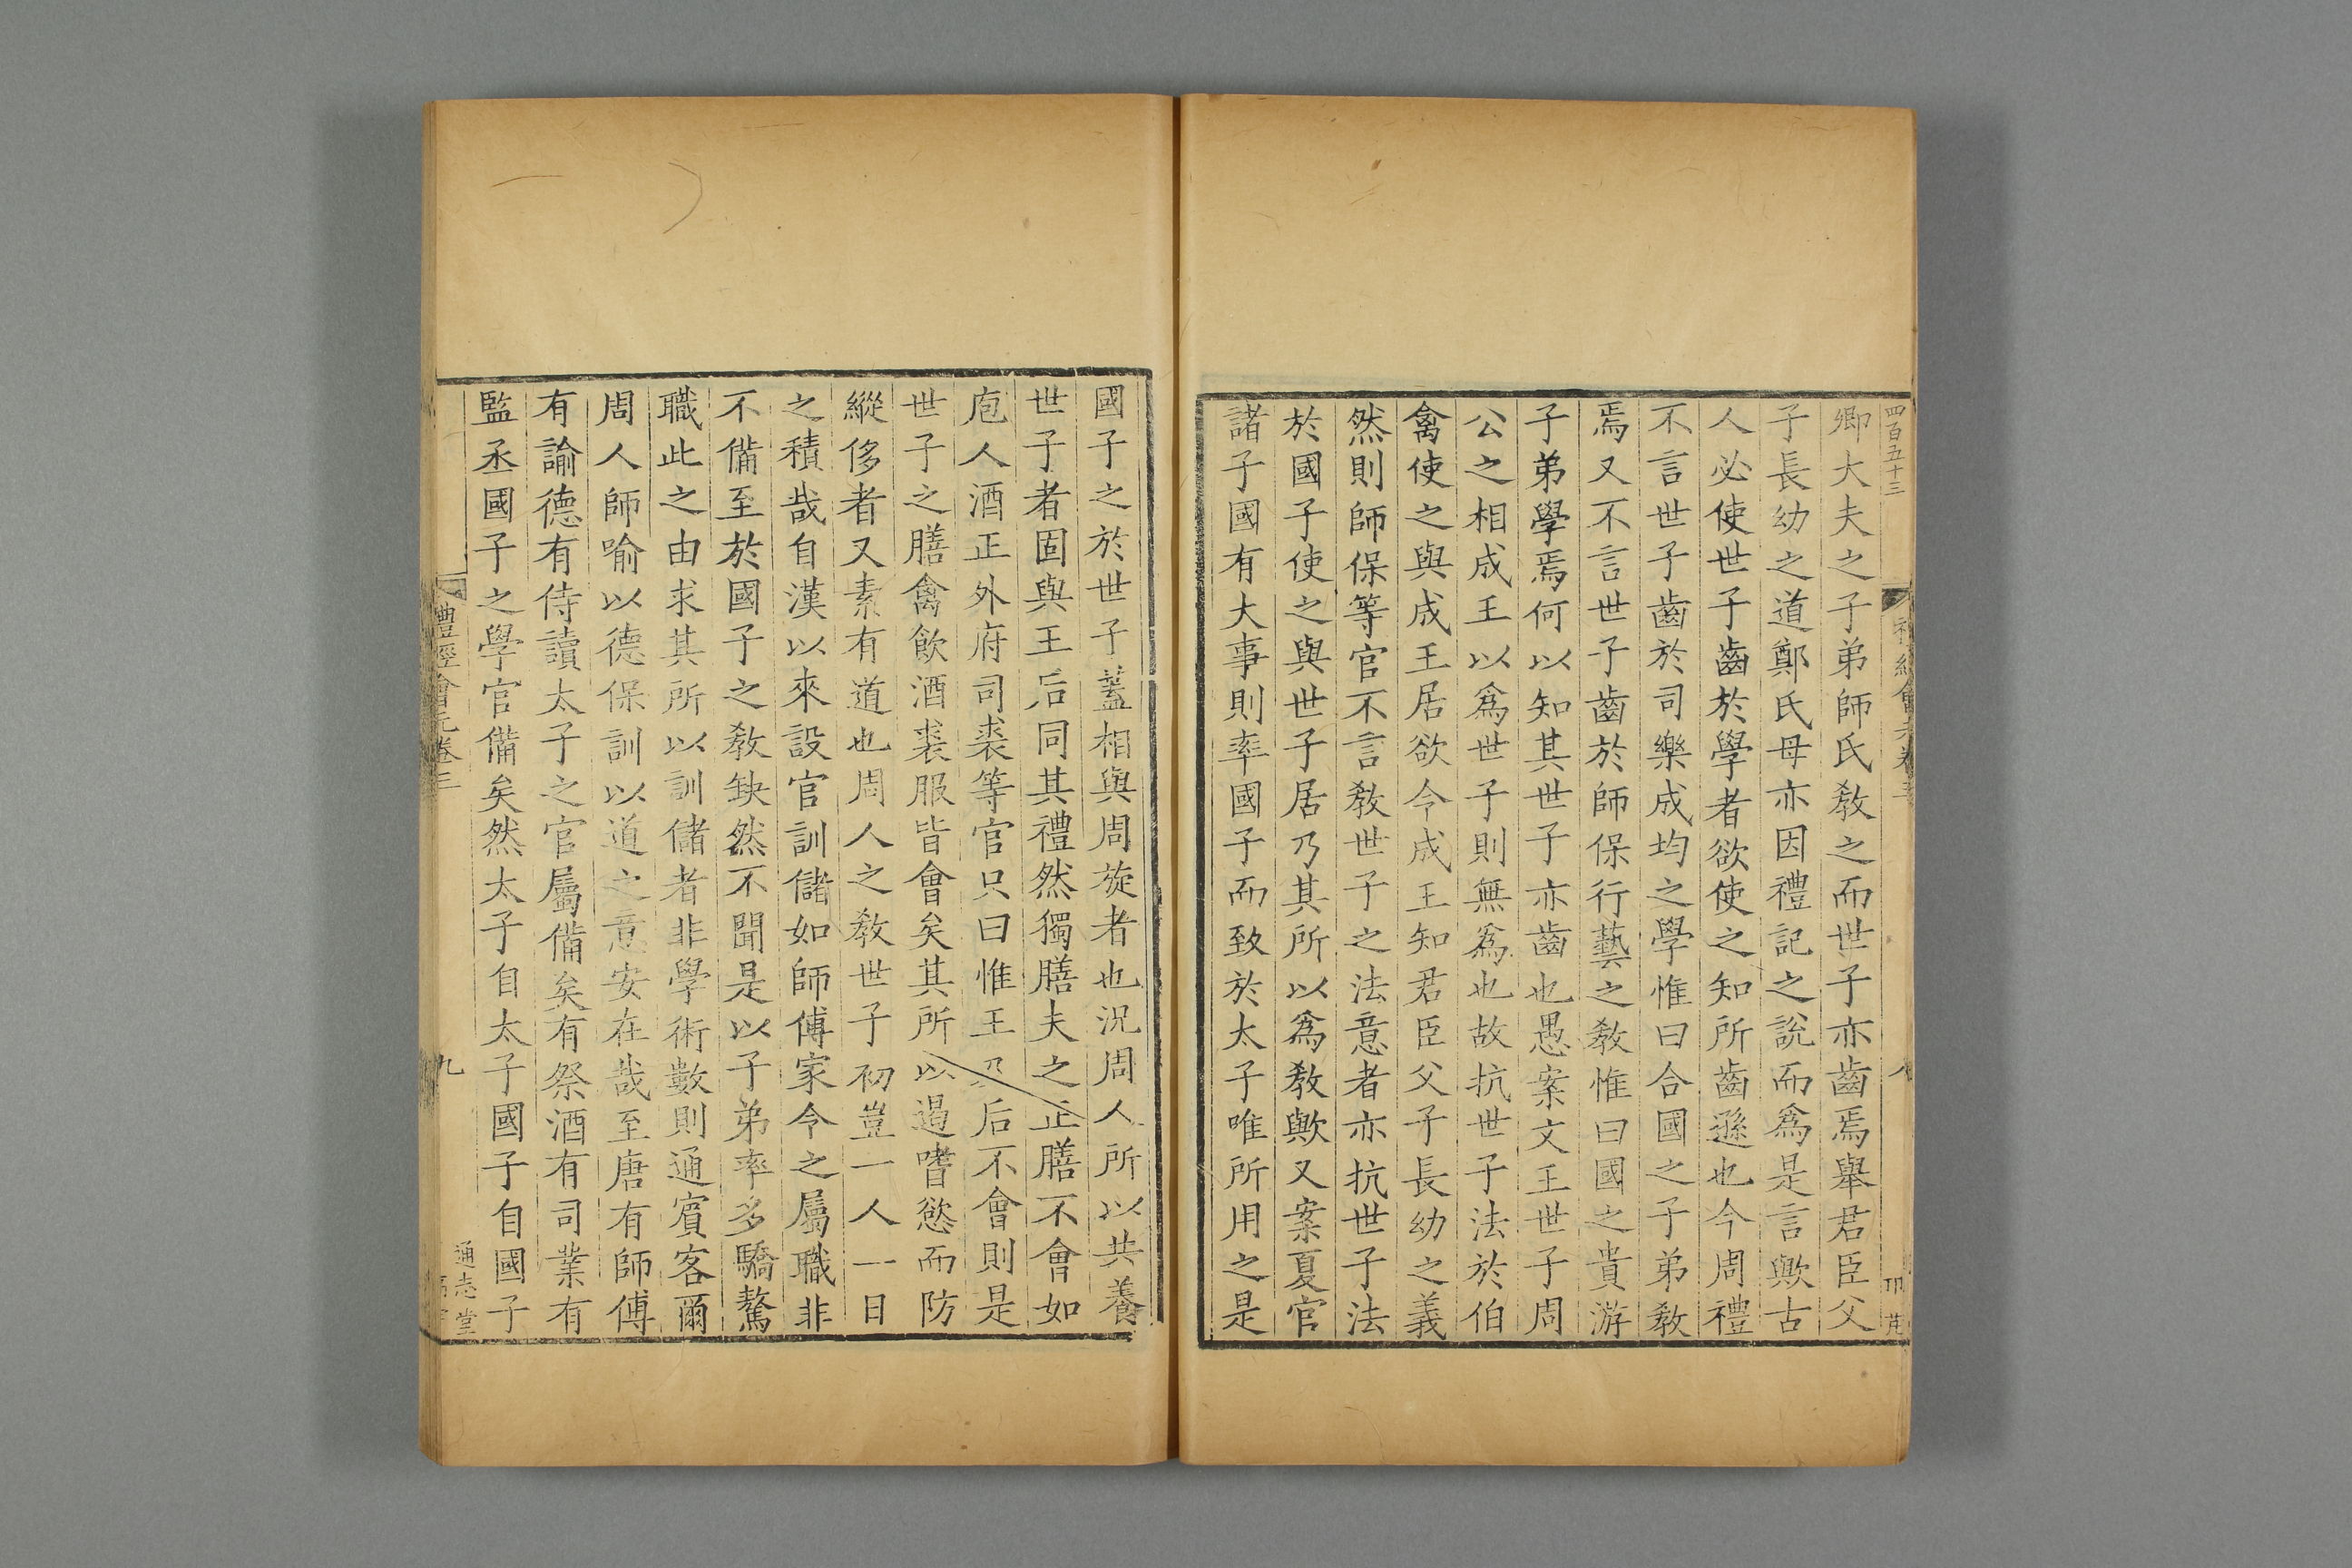 四百五十三
卿大夫之子弟師氏敎之而世子亦齒焉舉君臣父
子長幼之道鄭氏毋亦因禮記之說而爲是言歟古
人必使世子齒於學者欲使之知所齒遜也今周禮
不言世子齒於司樂成均之學惟曰合國之子弟敎
焉又不言世子齒於師保行藝之敎惟曰國之貴游
子弟學焉何以知其世子亦齒也愚案文王世子周
公之相成王以爲世子則無爲也故抗世子法於伯
禽使之與成王居欲令成王知君臣父子長幼之義
然則師保等官不言敎世子之法意者亦抗世子法
於國子使之與世子居乃其所以爲敎歟又案夏官
諸子國有大事則率國子而致於太子唯所用之是
國子之於世子蓋相與周旋者也況周人所以共養
世子者固與王后同其禮然獨膳夫之正膳不會如
庖人酒正外府司裘等官只曰惟王及后不會則是
世子之膳禽飲酒裘服皆會矣其所以遏嗜慾而防
縱侈者又素有道也周人之敎世子初豈一人一日
之積哉自漢以來設官訓儲如師傅家令之屬職非
不備至於國子之敎缺然不聞是以子弟率多驕驁
職此之由求其所以訓儲者非學術數則通賓客爾
周人師喻以德保訓以道之意安在哉至唐有師傅
有諭德有侍讀太子之官屬備矣有祭酒有司業有
監丞國子之學官備矣然太子自太子國子自國子
禮經會元卷三
九
通志堂